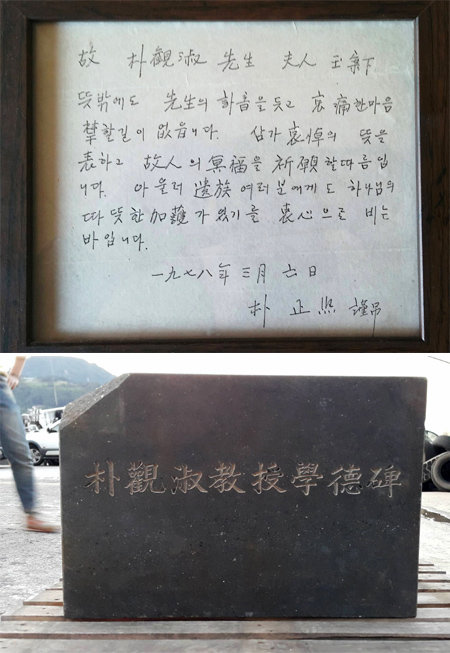 故 朴觀淑 先生 夫人 玉案下
뜻밖에도 先生의 訃音을 듣고 哀痛한마음
禁할길이 없읍니다. 삼가 哀悼의 뜻을
表하고 故人의 冥福을 祈願할따름입
니다. 아울러 遺族 여러분에게도 하나님의
따뜻한 加護가 있기를 衷心으로 비는
바입니다.
一九七八年 三月 六日
朴 正 熙 謹弔
朴觀淑教授學德碑